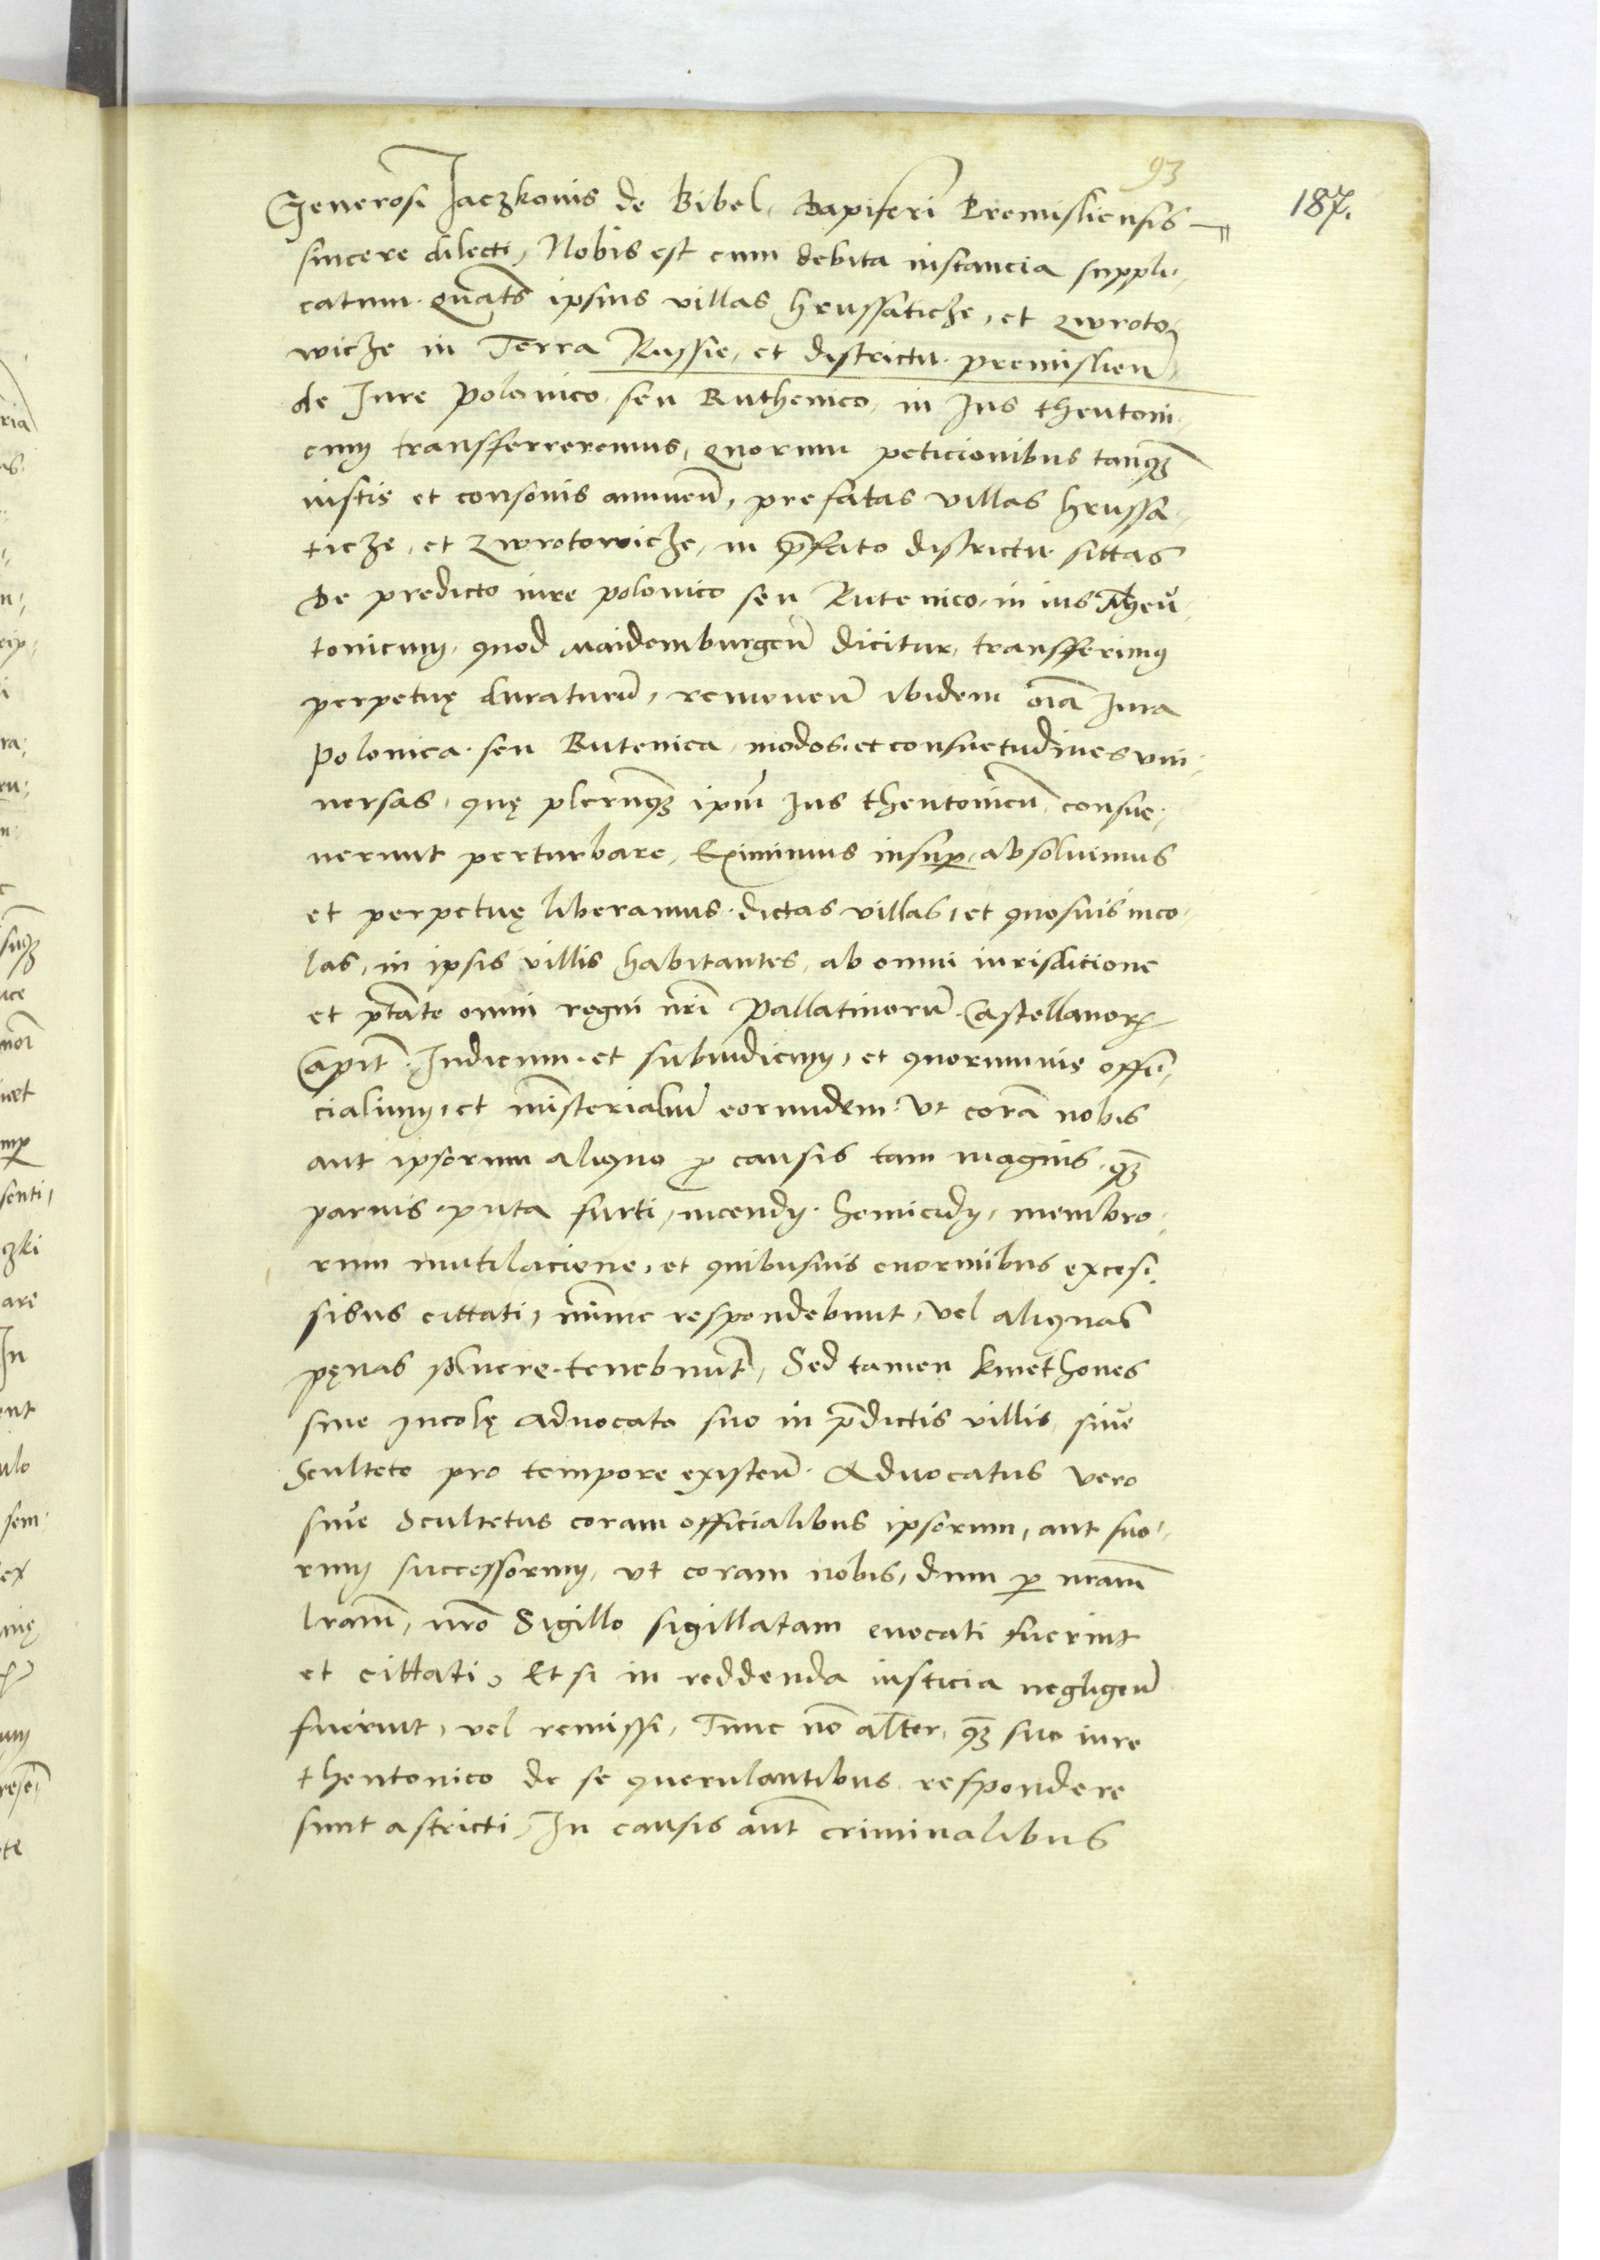 93
187.
Generosi Jaczkonis de Bibel, dapiferi Premisliensis
sincere dilecti, Nobis est cum debita instancia suppli,
catum. Quats ipsius villas hrussaticze, et zwroto
wicze in Terra Russie, et districtu premislien
de Jure polonico seu Ruthenico, in Jus theutoni
cum transfferreremus, Quorum peticionibus tanq3
iustis et consonis annuen, prefatas villas hrussa,
ticze, et zwrotowicze, in pfato districtu sittas
de predicto iure polonico seu Rutenico in ius Theu,
tonicum, quod maidemburgen dicitur, transfferimus
perpetuę duraturu, remouen ibidem oia Jura
polonica seu Rutenica, modos et consuetudines vni,
uersas, quę plerunq3 ipm Jus theutonicu consue,
uerunt perturbare, Eximimus insup, absoluimus
et perpetuę liberamus dictas villas, et quosuis inco,
las, in ipsis villis habitantes, ab omni iurisditione
et ptate omni regni nri Pallatinoru Castellanor
Capit. Iudicum et subiudicum, et quorumuis offi,
cialium, et ministerialiu eorundem vt cora nobis
aut ipsorum aliquo p causis tam magnis, q3
paruis, puta furti, incendy, homicidy, membro,
rum mutilacione, et quibusuis enormibus excesi,
sibus cittati, minime respondebunt, vel aliquas
pęnas soluere tenebunt, Sed tamen kmethones
siue Jncolę aduocato suo in pdictis villis, siue
Sculteto pro tempore existen. Aduocatus vero
siue Scultetus coram officialibus ipsorum, aut suo,
rum successorum, vt coram nobis, dum p nram
lram, nro Sigillo sigillatam euocati fuerint
et cittati, Et si in reddenda iusticia negligen
fuerint, vel remissi, Tunc no alter, q3 suo iure
theutonico de se querulantibus respondere
sunt astricti, In causis aut criminalibus